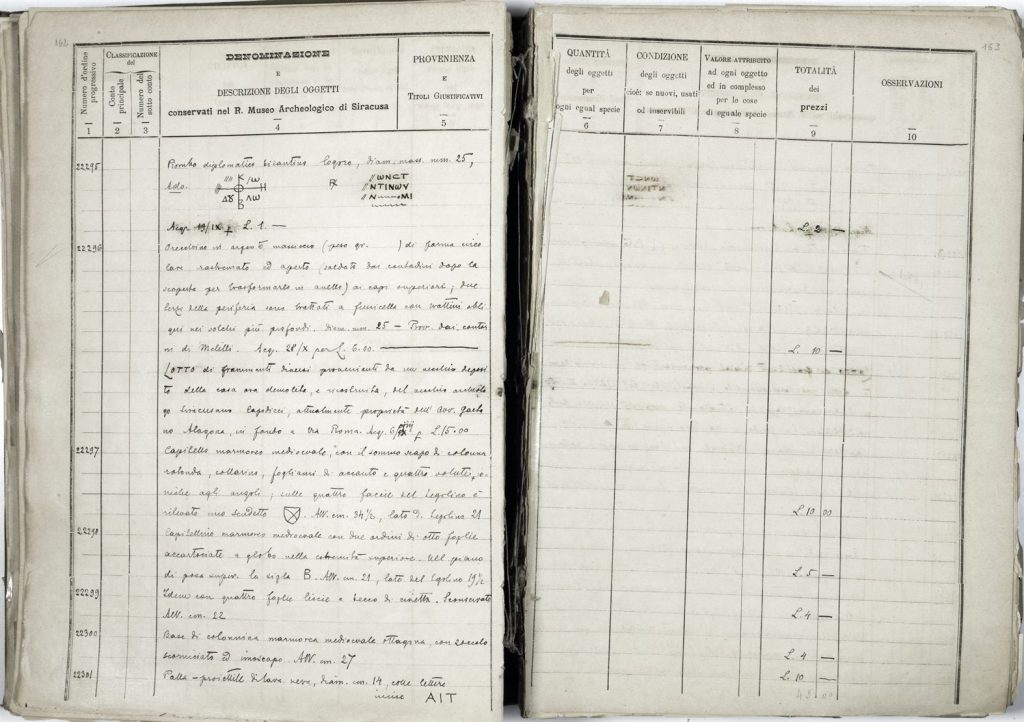 162
Numero d'ordine progressivo
CLASSIFICAZIONE del
Conto principale
Numero del sotto conto
DENOMINAZIONE
E
DESCRIZIONE DEGLI OGGETTI
conservati nel R. Museo Archeologico di Siracusa
PROVENIENZA
E
TITOLI GIUSTIFICATIVI
1 2 3 4 5
22295 Piombo diplomatico bizantino logoro, diam. mass. mm. 25,
Ado.
K /ω
H
Δδ Λω
B
℞
//ωNCT
//NTINωV
//N MI
Acq. 19/IX £ L. 1. —
22296 Orecchino in argento massiccio (peso gr. ) di forma circo
lare rastremato ed aperto (saldato dai contadini dopo la
scoperta per trasformarlo in anello) ai capi superiori; due
terzi della periferia sono trattati a funicella con trattini obli
qui nei solchi più profondi. diam. mm. 25 — Prov. dai contor
ni di Melilli. Acq. 28/X per L. 6.00. —
LOTTO di frammenti diversi provenienti da un vecchio deposi
to della casa ora demolita, e ricostruita, del vecchio archeolo
go siracusano Capodieci, attualmente proprietà dell'Avv. Gaeta
no Alagona, in fondo a via Roma. Acq. 6/ £ L. 15.00
22297 Capitello marmoreo medioevale, con il sommo scapo di colonna
rotonda, collarino, fogliami di acanto e quattro volute io
niche agli angoli; sulle quattro faccie del tegolino è
rilevato uno scudetto. Alt. cm. 34½, lato d. tegolino 21
22298 Capitellino marmoreo medioevale con due ordini di otto foglie
accartociate a globo nella estremità superiore. Nel piano
di posa super. la sigla B. Alt. cm. 21, lato del tegolino 19½
22299 Idem con quattro foglie liscie a becco di civetta. Sconservato
Alt. cm. 22
22300 Base di colonnina marmorea medioevale ottagona, con zoccolo
scorniciato ed imoscapo. Alt. cm. 27
22301 Palla-proiettile di lava nera, diam. cm. 14, colle lettere
incise AIT
163
QUANTITÀ
degli oggetti
per
ogni egual specie
CONDIZIONE
degli oggetti
cioè: se nuovi, usati
od inservibili
VALORE ATTRIBUITO
ad ogni oggetto
ed in complesso
per le cose
di eguale specie
TOTALITÀ
dei
prezzi
OSSERVAZIONI
6 7 8 9 10
L. 2 —
L. 10 —
L. 10 00
L. 5 —
L. 4 —
L. 4 —
L. 10 —
45.00